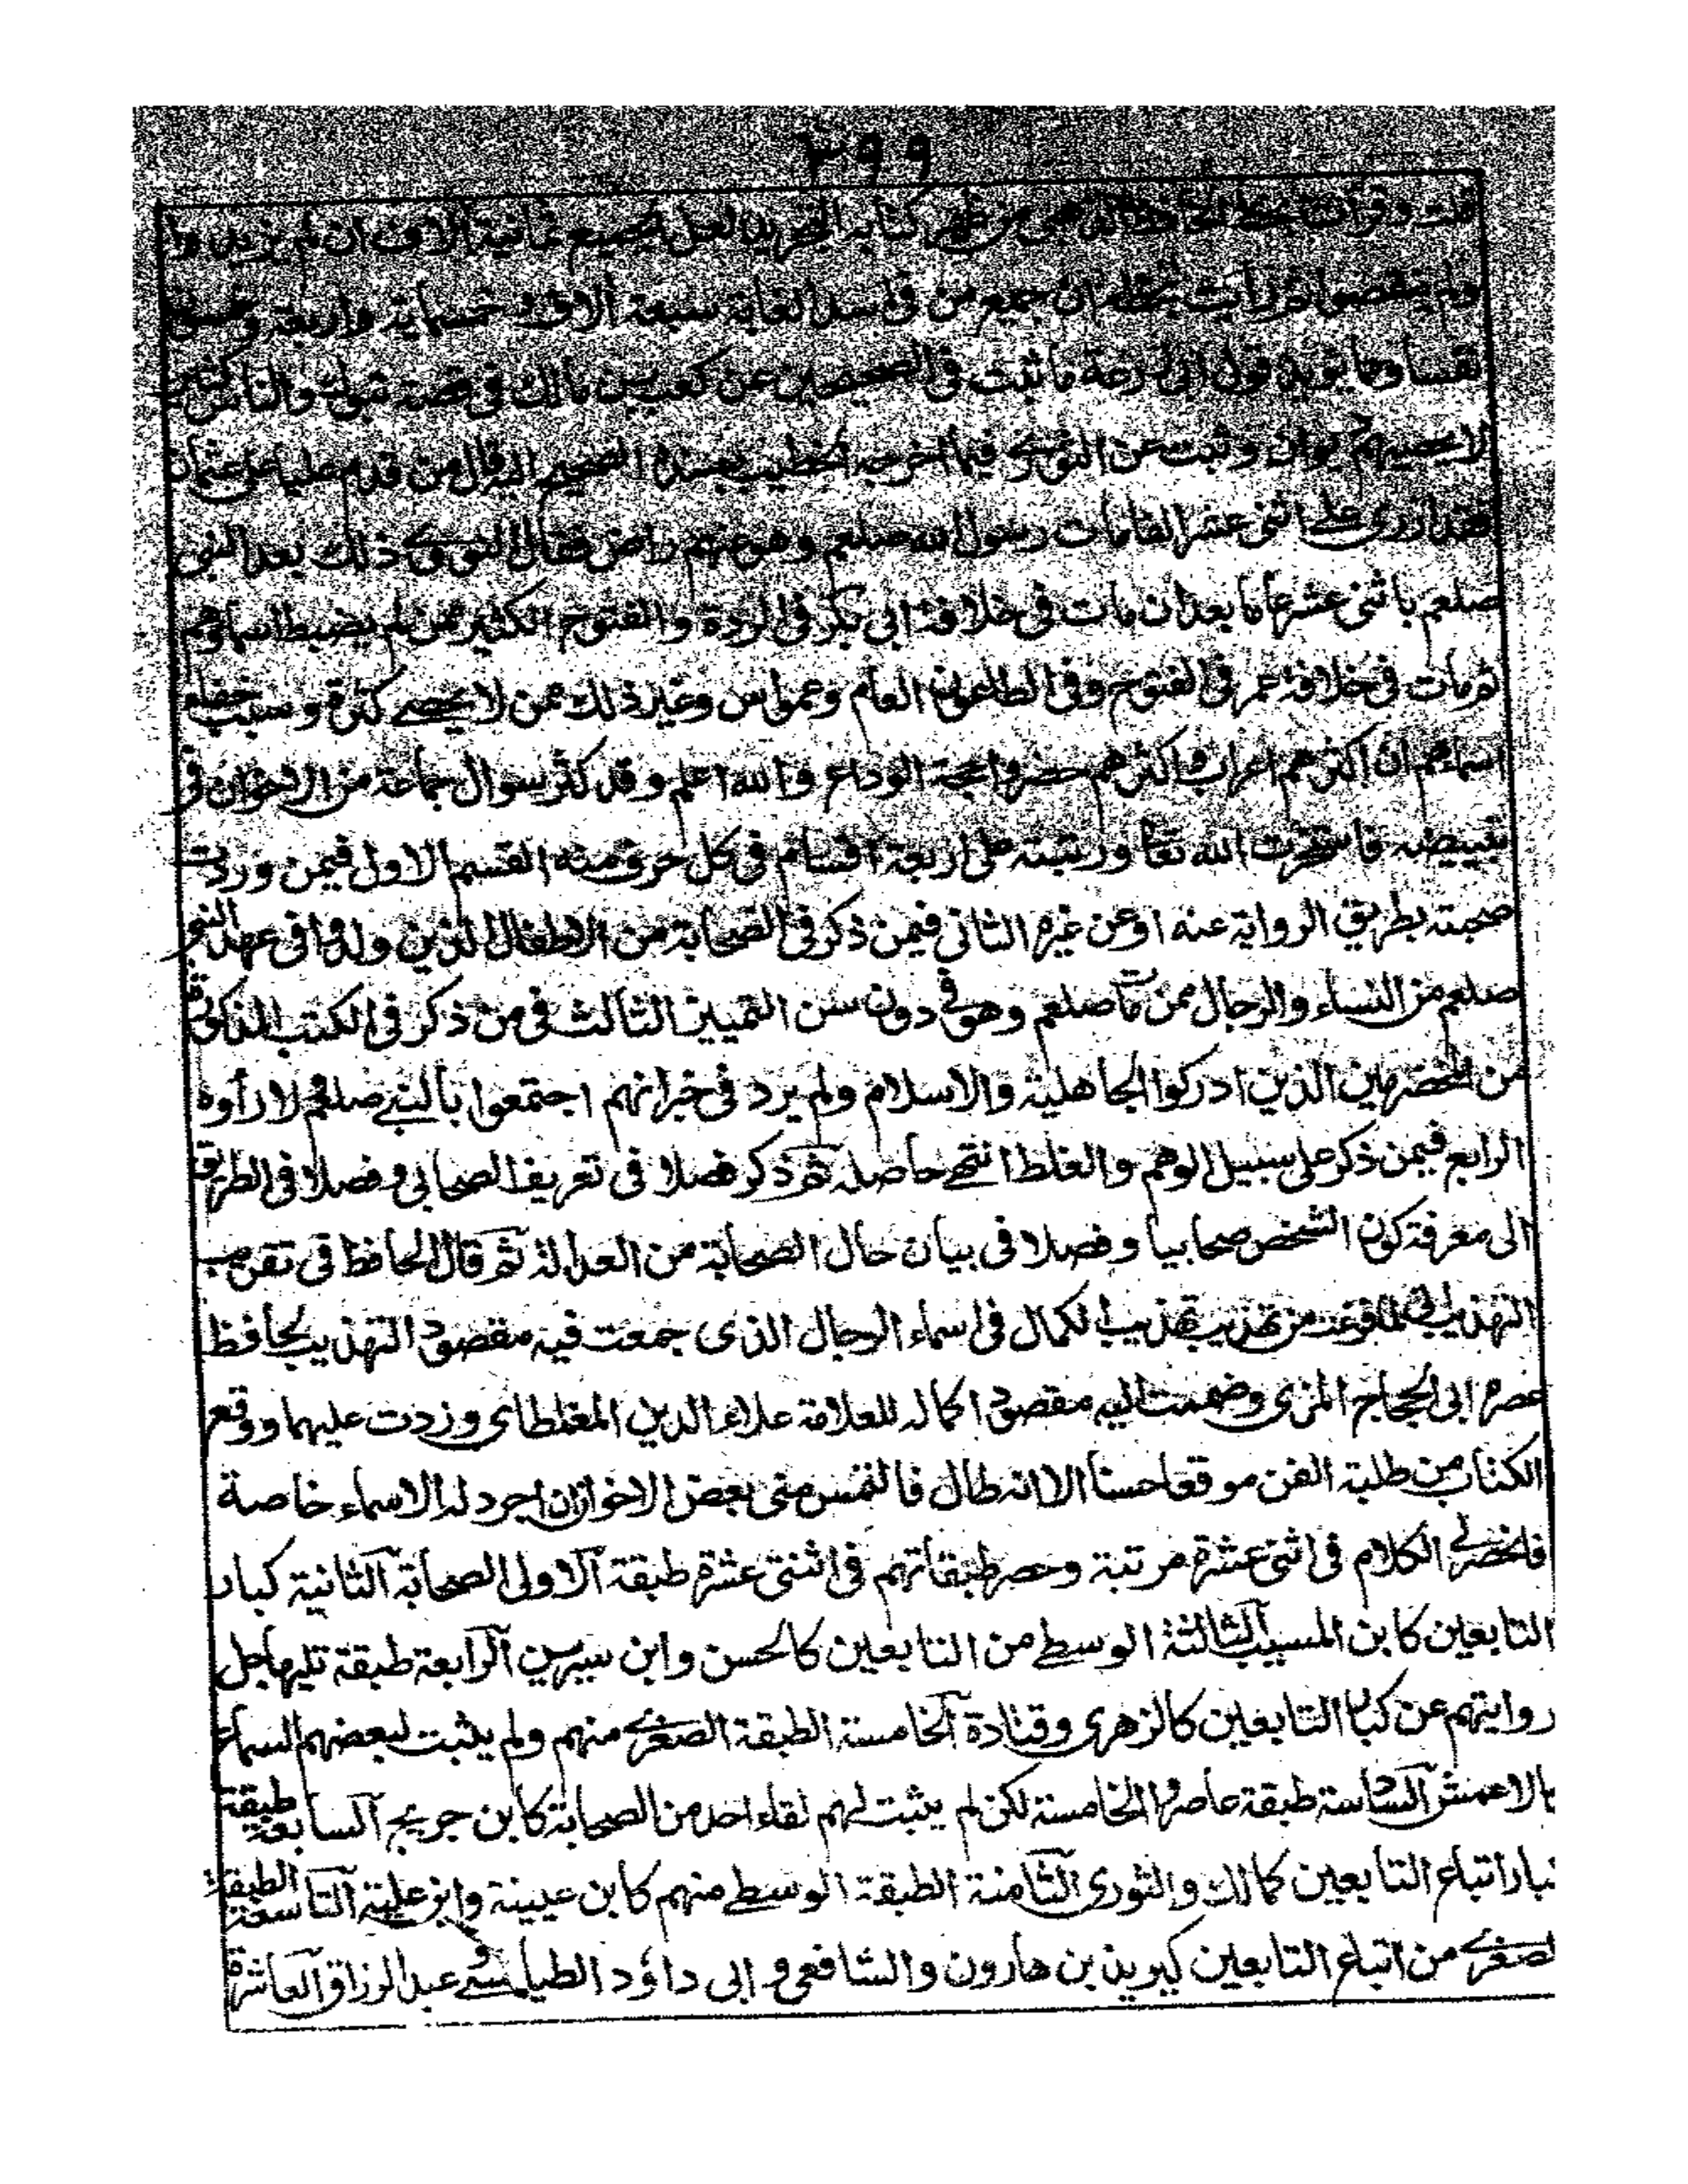 ٣٩٩
قلت وقرأت بخط الحافظ الذهبى من ظهر كتابه التجريد لعل الجميع ثمانية آلاف ان لم يزيدوا
ولم ينقصوا ثم رأيت بخطه ان جميع من فى اسد الغابة سبعة آلاف وخمسمائة واربعة وخمسون
نفسا ومما يؤيد قول ابى زرعة ما ثبت فى الصحيحين عن كعب بن مالك فى قصة تبوك والناس كثير
لا يحصيهم ديوان وثبت عن الثورى فيما اخرجه الخطيب بسنده الصحيح اليه قال من قدم عليا على عثمان
فقد ازرى على اثنى عشر الفا مات رسول الله صلعم وهو عنهم راض فقال النووى ذلك بعد النبى
صلعم باثنى عشر عاما بعد ان مات فى خلافة ابى بكر فى الردة والفتوح الكثير ممن لم يضبط اسماؤهم
ثم مات فى خلافة عمر فى الفتوح وفى الطاعون العام وعمواس وغير ذلك ممن لا يحصى كثرة وسبب خفاء
اسمائهم ان اكثرهم اعراب واكثرهم حضروا حجة الوداع والله اعلم وقد كثر سوال جماعة من الاخوان فى
تبييضه فاستخرت الله تعا ورتبته على اربعة اقسام فى كل حرف منه القسم الاول فيمن وردت
صحبته بطريق الرواية عنه او عن غيره الثانى فيمن ذكر فى الصحابة من الاطفال الذين ولدوا فى عهد النبى
صلعم من النساء والرجال ممن مآ صلعم وهو فى دون سن التمييز الثالث فى من ذكر فى الكتب المذكورة
من المخضرمين الذين ادركوا الجاهلية والاسلام ولم يرد فى خبر انهم اجتمعوا بالنبى صلعم لا رأوه
الرابع فيمن ذكر على سبيل الوهم والغلط انتهى حاصله ثم ذكر فصلا فى تعريف الصحابى وفصلا فى الطريق
الى معرفة كون الشخص صحابيا وفصلا فى بيان حال الصحابة من العدالة ثم قال الحافظ فى تقريب
التهذيب انى لما فرغت من تهذيب تهذيب الكمال فى اسماء الرجال الذى جمعت فيه مقصود التهذيب لحافظ
عصره ابى الحجاج المزى وضممت اليه مقصود اكماله للعلامة علاء الدين المغلطاى وزدت عليهما ووقع
الكتاب من طلبة الفن موقعا حسنا الا انه طال فالتمس منى بعض الاخوان ان اجرد له الاسماء خاصة
فانحصر لى الكلام فى اثنى عشرة مرتبة وحصر طبقاتهم فى اثنتى عشرة طبقة الاولى الصحابة الثانية كبار
التابعين كابن المسيب الثالثة الوسطى من التابعين كالحسن وابن سيرين الرابعة طبقة تليها جل
روايتهم عن كبار التابعين كالزهرى وقتادة الخامسة الطبقة الصغرى منهم ولم يثبت لبعضهم السماع
كالاعمش السادسة طبقة عاصروا الخامسة لكن لم يثبت لهم لقاء احد من الصحابة كابن جريج السابعة طبقة
كبار اتباع التابعين كمالك والثورى الثامنة الطبقة الوسطى منهم كابن عيينة وابن علية التاسعة الطبقة
الصغرى من اتباع التابعين كيزيد بن هارون والشافعى و ابى داؤد الطيالسى وعبد الرزاق العاشرة